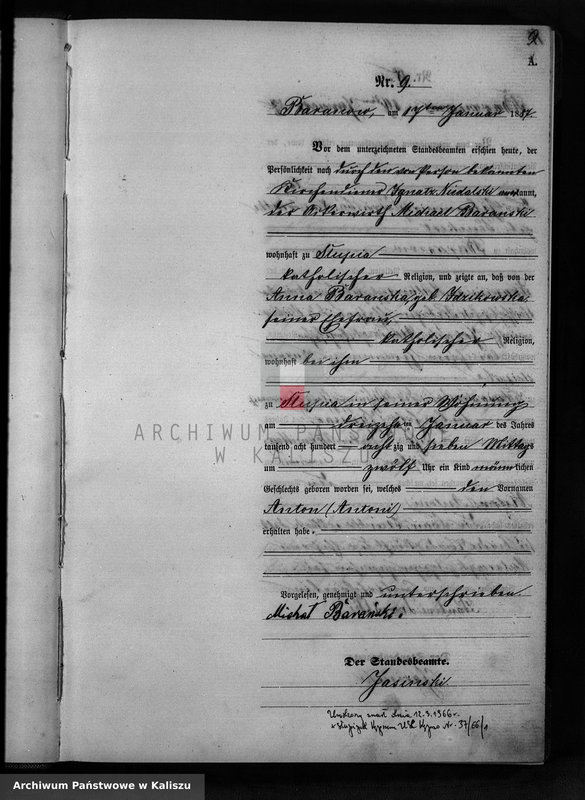 2
A.
Nr. 9.
Baranow, am 17ten Januar 1887.
Vor dem unterzeichneten Standesbeamten erschien heute, der
Persönlichkeit nach durch den von Person bekannten
Kirchendiener Ignatz Niedalski anerkannt,
der Ackerwirth Michael Baranski
wohnhaft zu Slupia
katholischer Religion, und zeigte an, daß von der
Anna Baranska, geb. Idzikowska
seiner Ehefrau,
katholischer Religion,
wohnhaft bei ihm
zu Slupia in seiner Wohnung
am dreizehnten Januar des Jahres
tausend acht hundert achtzig und sieben Mittags
um zwölf Uhr ein Kind männlichen
Geschlechts geboren worden sei, welches den Vornamen
Anton (Antoni)
erhalten habe.
Vorgelesen, genehmigt und unterschrieben
Michał Barański.
Der Standesbeamte.
Jasinski
zmarł dnia 12.3.1966 r.
USC Nr. 37/66/1
ARCHIWUM PAŃSTWOWE
W KALISZU
Archiwum Państwowe w Kaliszu